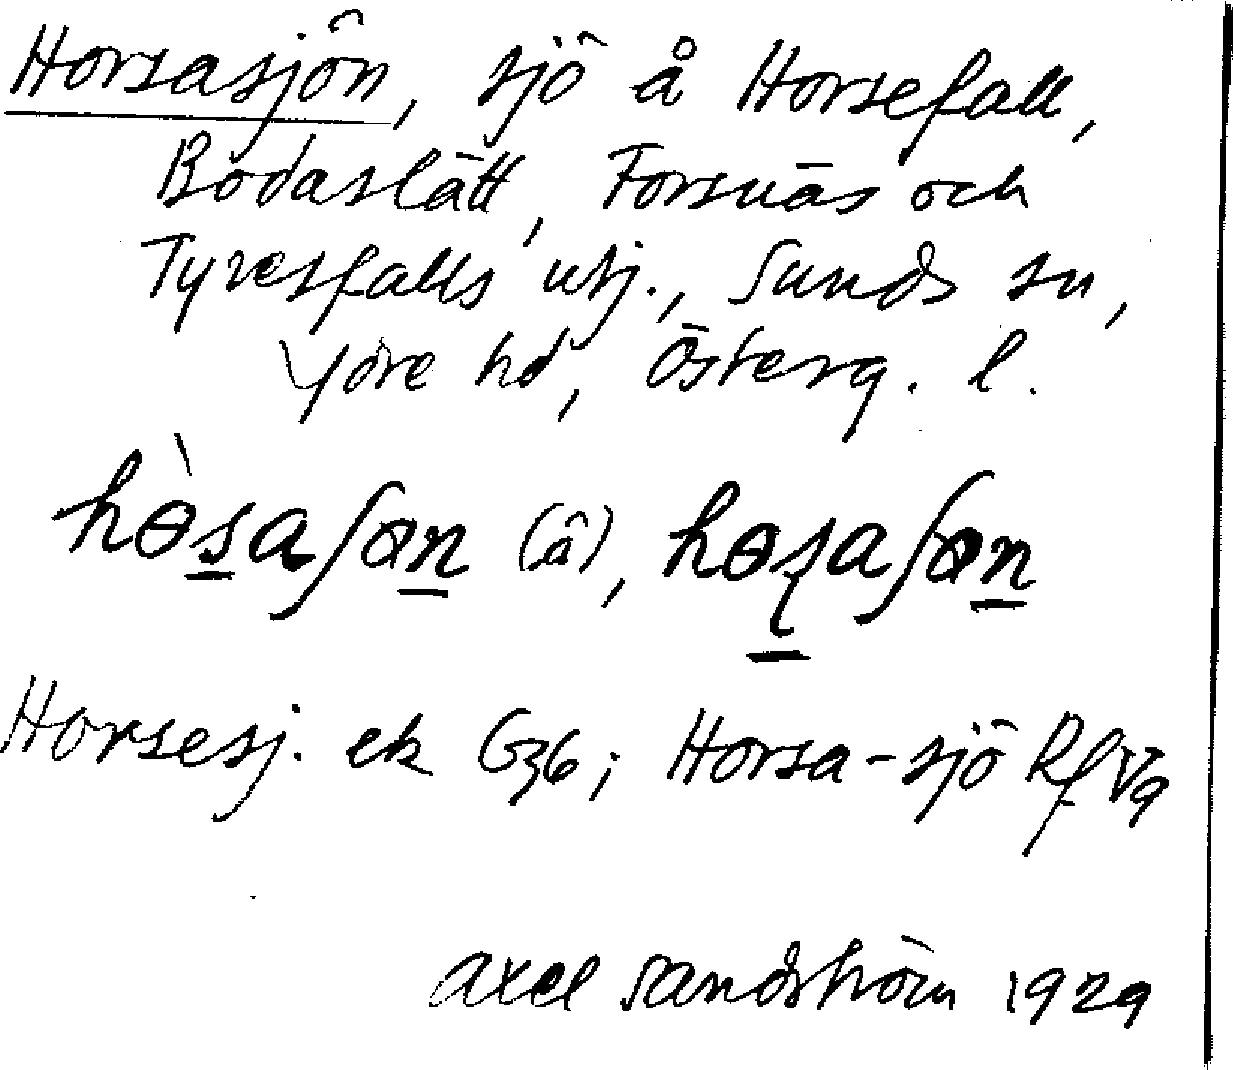 Horsasjön, sjö å Horsefall,
Bodaslätt, Forsnäs och
Tyresfalls utj., Sunds sn,
Ydre hd, Österg. l.
hɵ̀s̲aʃøn̲ (â), hɵʂ̲aʃøn̲
Horsesj. ek G36; Horsa-sjö Rf V9
Axel Sandström 1929